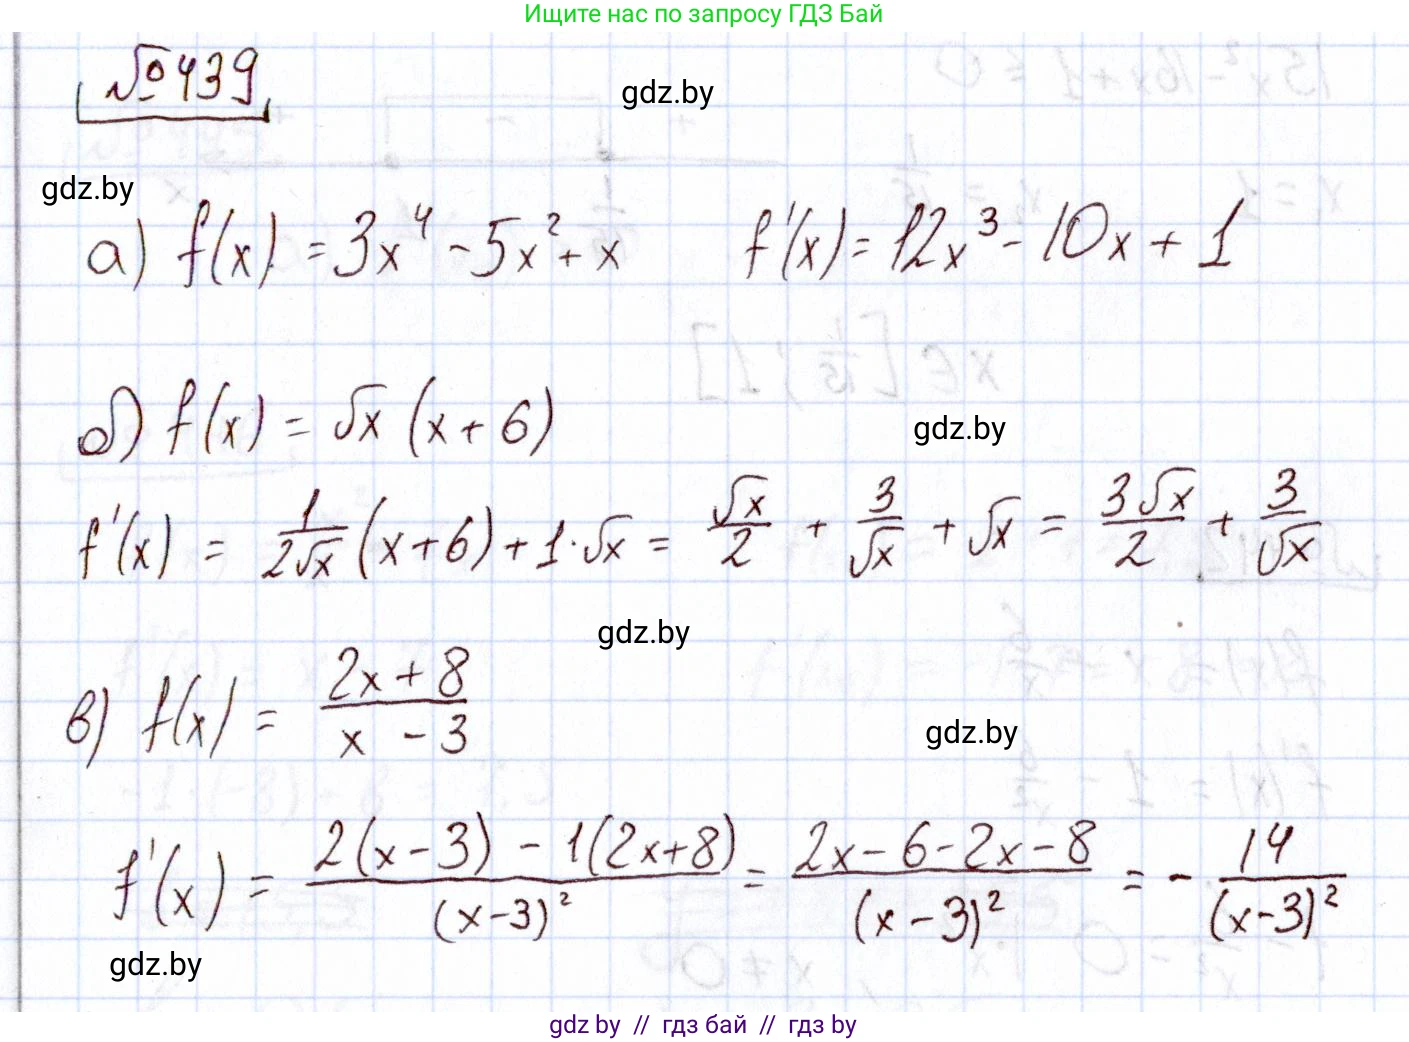 Ищите нас по запросу ГДЗ Бай
№439
gdz.by
gdz.by
а) f(x) = 3x⁴ - 5x² + x f'(x) = 12x³ - 10x + 1
б) f(x) = √x (x + 6)
gdz.by
f'(x) = 1/(2√x) (x+6) + 1·√x = √x/2 + 3/√x + √x = 3√x/2 + 3/√x
gdz.by
в) f(x) = (2x + 8)/(x - 3)
gdz.by
f'(x) = (2(x-3) - 1(2x+8))/(x-3)² = (2x - 6 - 2x - 8)/(x-3)² = - 14/(x-3)²
gdz.by
gdz by // гдз бай // гдз by